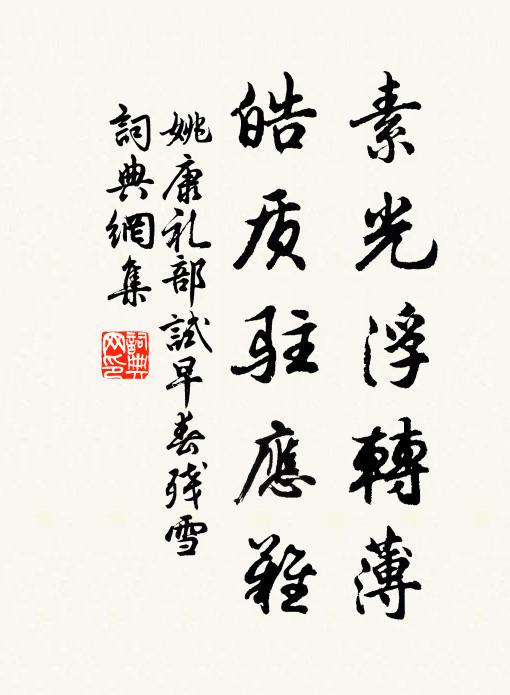 素光浮轉薄
皓质駐應難
姚康礼部試早春残雪
詞典網集
詞典网印